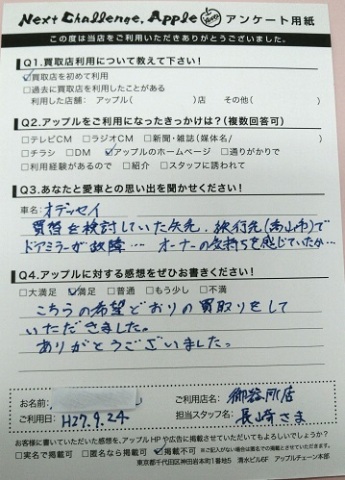 Next Challenge. Apple アンケート用紙
この度は当店をご利用いただきありがとうございました。
Q1.買取店利用について教えて下さい!
☑買取店を初めて利用
□過去に買取店を利用したことがある
利用した店舗: アップル( )店 その他( )
Q2.アップルをご利用になったきっかけは?(複数回答可)
□テレビCM □ラジオCM □新聞・雑誌(媒体名/ )
□チラシ □DM ☑アップルのホームページ □通りがかりで
□利用経験があるので □紹介 □スタッフに誘われて
Q3.あなたと愛車との思い出を聞かせください!
車名:オデッセイ
買替を検討していた矢先、旅行先(高山市)で
ドアミラーが故障… オーナーの気持ちを感じていたか…
Q4.アップルに対する感想をぜひお書きください!
□大満足 ☑満足 □普通 □もう少し □不満
こちらの希望どおりの買取りをして
いただきました。
ありがとうございました。
お名前: ご利用店名: 御器所店
ご利用日: H27.9.24 担当スタッフ名: 長崎さま
お客様に書いていただいた感想を、アップルHPや広告に掲載させていただいてもよろしいでしょうか?
□実名で掲載可 □匿名なら掲載可 ☑掲載不可 ※ご記入がない場合は匿名での掲載とさせていただきます。
東京都千代田区神田岩本町1番地5 清水ビル6F アップルチェーン本部